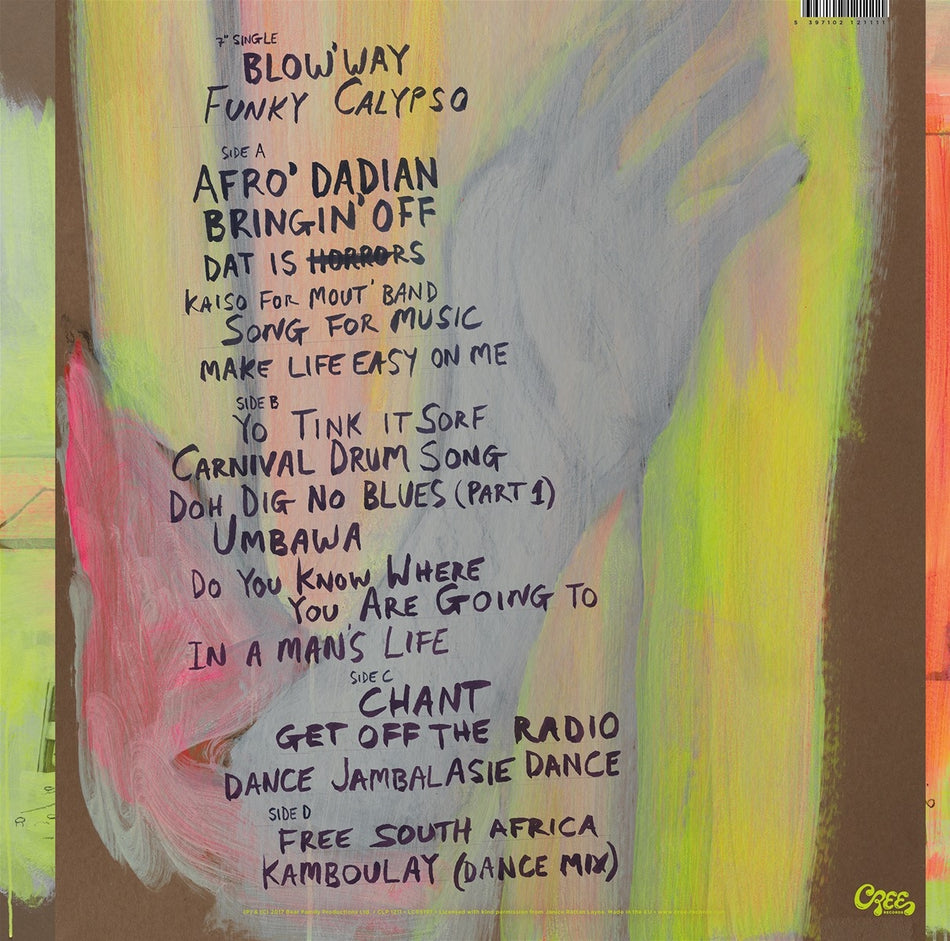 5 397102 121111
7" SINGLE
BLOW'WAY
FUNKY CALYPSO
SIDE A
AFRO' DADIAN
BRINGIN' OFF
DAT IS HORRORS
KAISO FOR MOUT' BAND
SONG FOR MUSIC
MAKE LIFE EASY ON ME
SIDE B
YO TINK IT SORF
CARNIVAL DRUM SONG
DOH DIG NO BLUES (PART 1)
UMBAWA
DO YOU KNOW WHERE
YOU ARE GOING TO
IN A MAN'S LIFE
SIDE C
CHANT
GET OFF THE RADIO
DANCE JAMBALASIE DANCE
SIDE D
FREE SOUTH AFRICA
KAMBOULAY (DANCE MIX)
(P) & (C) 2017 Bear Family Productions Ltd. / CLP 1211 • Licensed with kind permission from Janice Rattan Layne. Made in the EU • www.cree-records.com
CREE
RECORDS